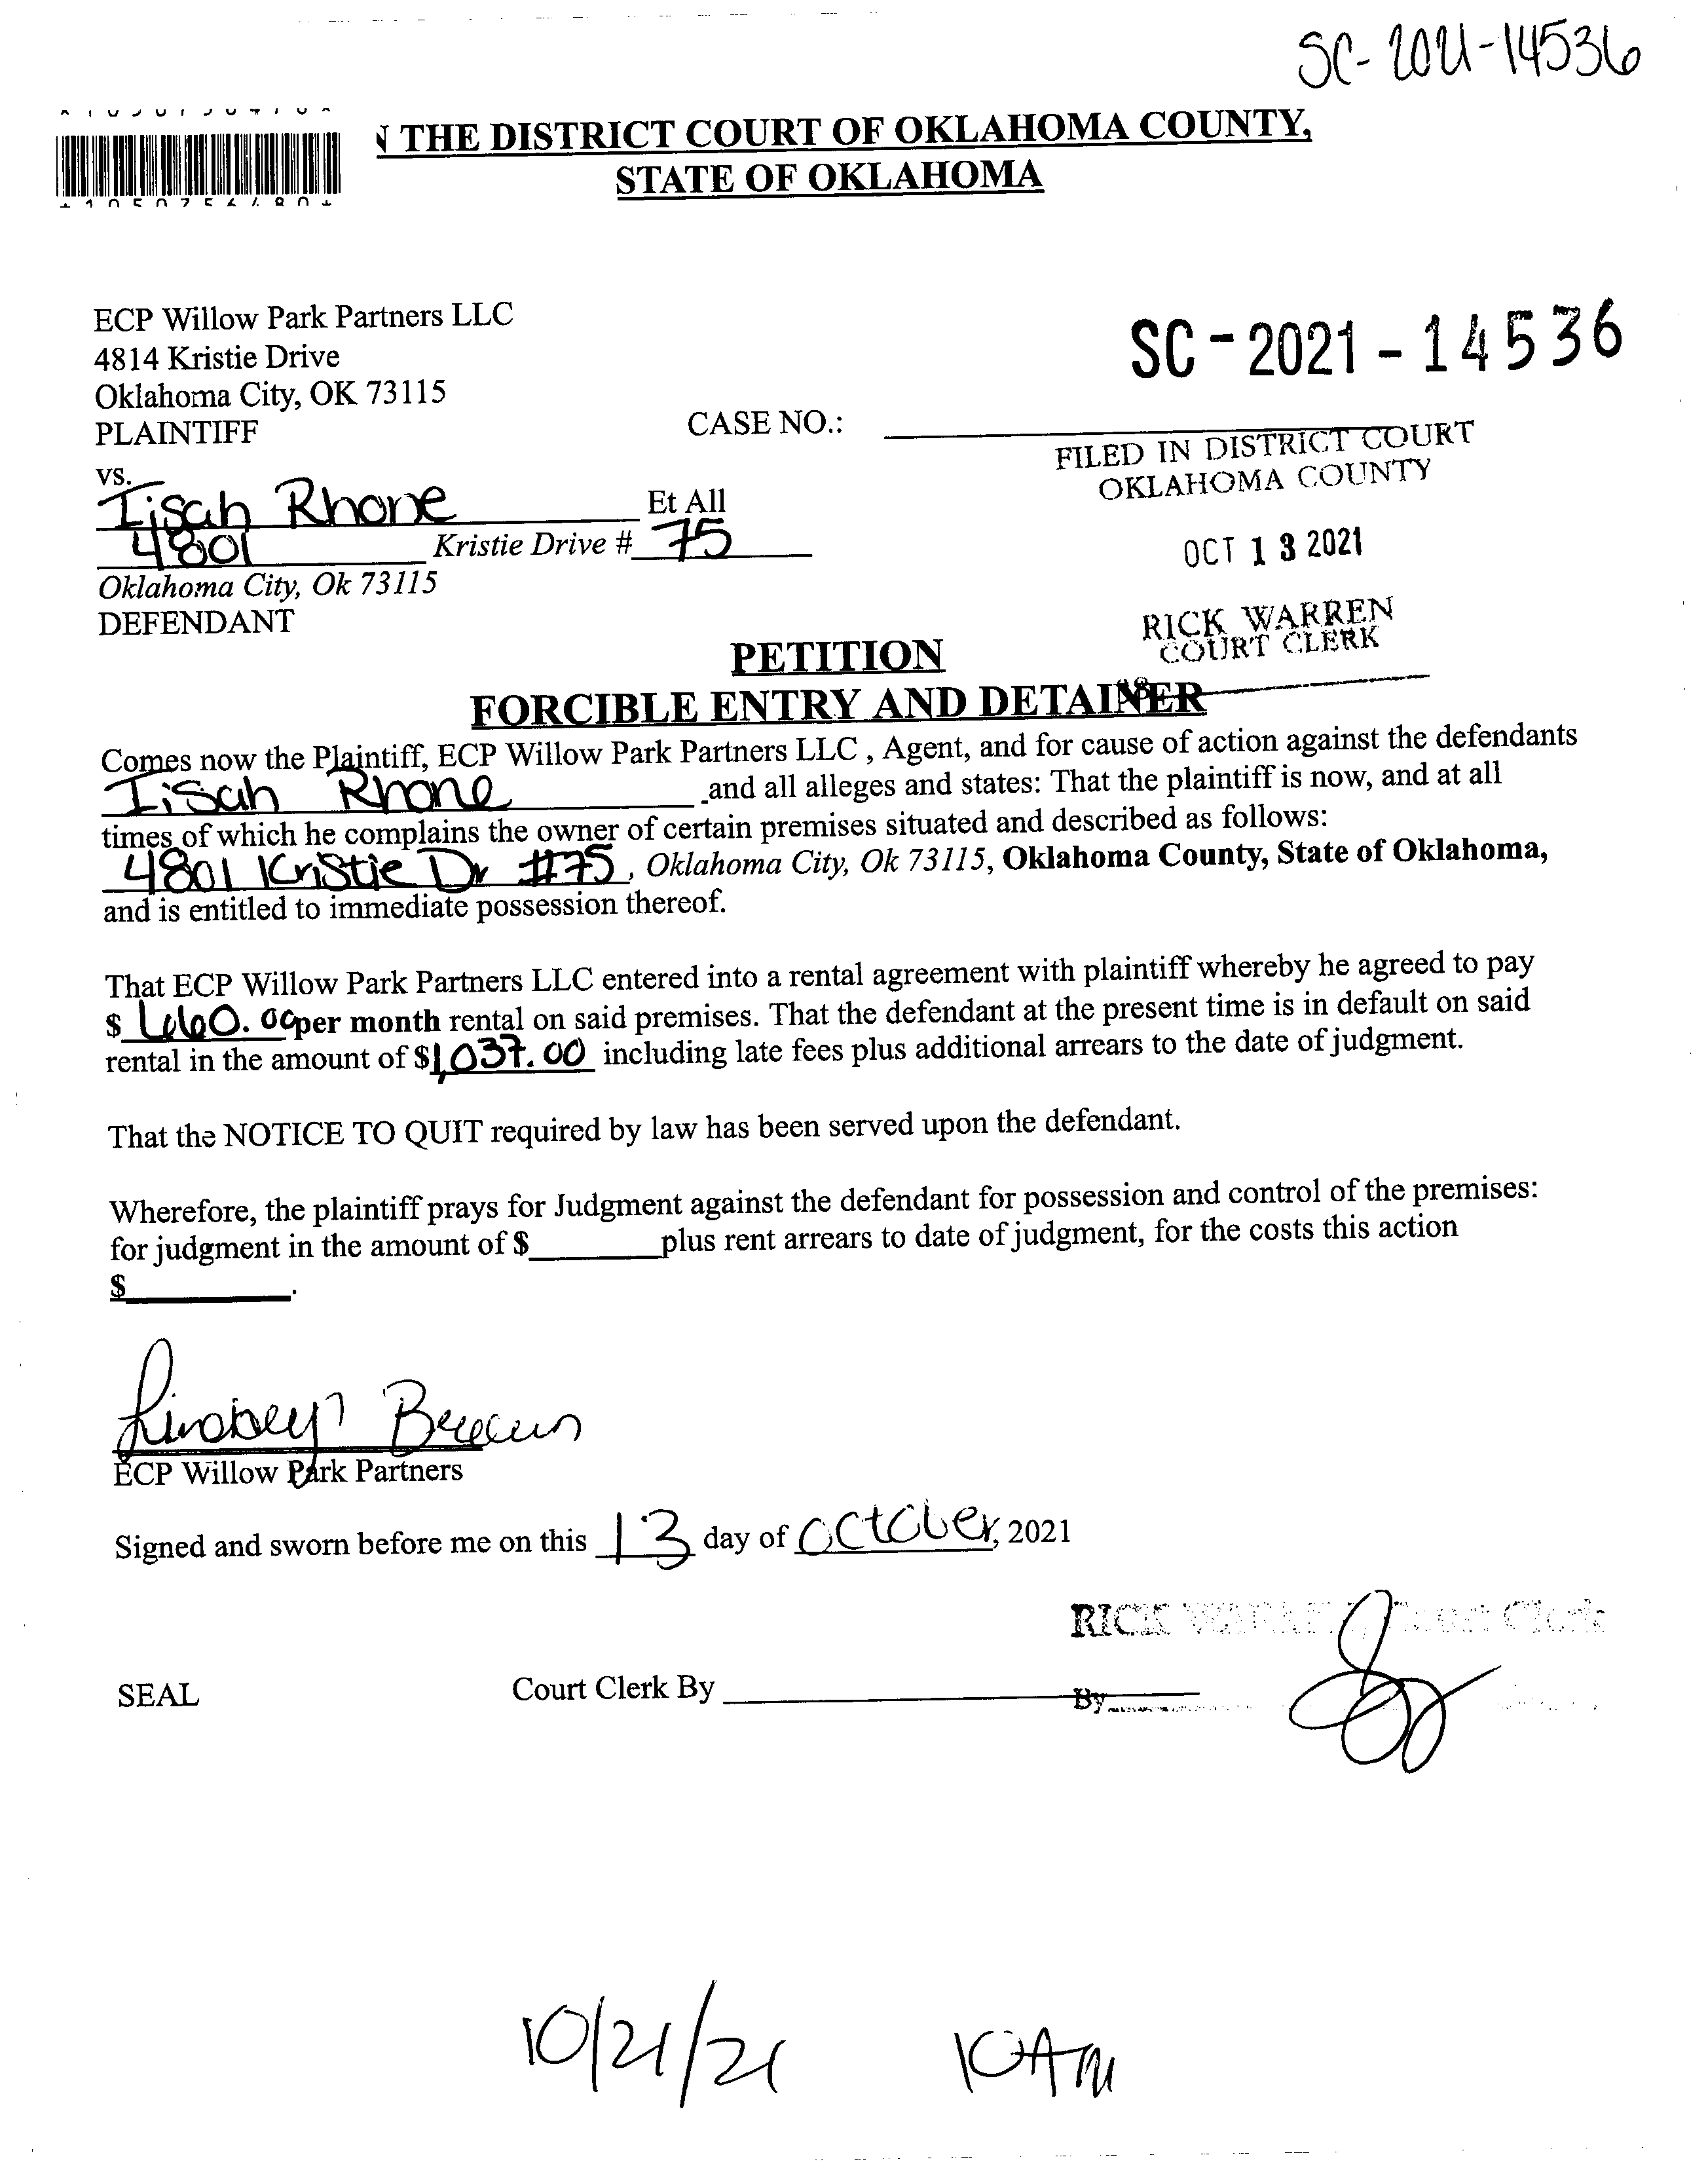 SC-2021-14536
THE DISTRICT COURT OF OKLAHOMA COUNTY,
STATE OF OKLAHOMA
ECP Willow Park Partners LLC
4814 Kristie Drive
Oklahoma City, OK 73115
PLAINTIFF
SC-2021-14536
CASE NO.:
FILED IN DISTRICT COURT
OKLAHOMA COUNTY
vs.
Iisah Rhone Et All
4801 Kristie Drive # 75
Oklahoma City, Ok 73115
DEFENDANT
OCT 13 2021
RICK WARREN
COURT CLERK
PETITION
FORCIBLE ENTRY AND DETAINER
Comes now the Plaintiff, ECP Willow Park Partners LLC , Agent, and for cause of action against the defendants
Iisah Rhone and all alleges and states: That the plaintiff is now, and at all
times of which he complains the owner of certain premises situated and described as follows:
4801 Kristie Dr #75, Oklahoma City, Ok 73115, Oklahoma County, State of Oklahoma,
and is entitled to immediate possession thereof.
That ECP Willow Park Partners LLC entered into a rental agreement with plaintiff whereby he agreed to pay
$ 660.00 per month rental on said premises. That the defendant at the present time is in default on said
rental in the amount of $1,037.00 including late fees plus additional arrears to the date of judgment.
That the NOTICE TO QUIT required by law has been served upon the defendant.
Wherefore, the plaintiff prays for Judgment against the defendant for possession and control of the premises:
for judgment in the amount of $_______plus rent arrears to date of judgment, for the costs this action
$_________.
ECP Willow Park Partners
Signed and sworn before me on this 13 day of October, 2021
RICK
SEAL
Court Clerk By
By
10/21/21 10AM